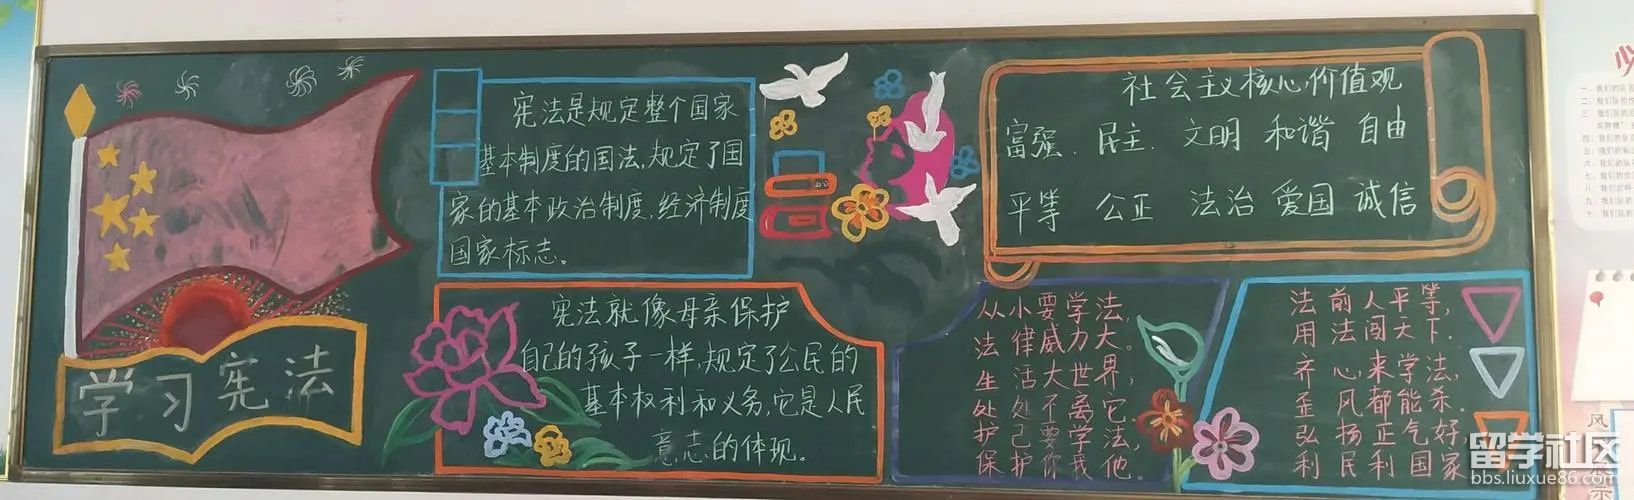 学习宪法
宪法是规定整个国家
基本制度的国法,规定了国
家的基本政治制度,经济制度
国家标志。
宪法就像母亲保护
自己的孩子一样,规定了公民的
基本权利和义务,它是人民
意志的体现。
社会主义核心价值观
富强、民主、文明 和谐 自由
平等 公正 法治 爱国 诚信
从小要学法,
法律威力大。
生活大世界,
处处不离它。
护己要学法,
保护你我他。
法前人平等,
用法闯天下.
齐心来学法,
歪风都能杀.
弘扬正气好,
利民利国家
留学社区
bbs.liuxue86.com